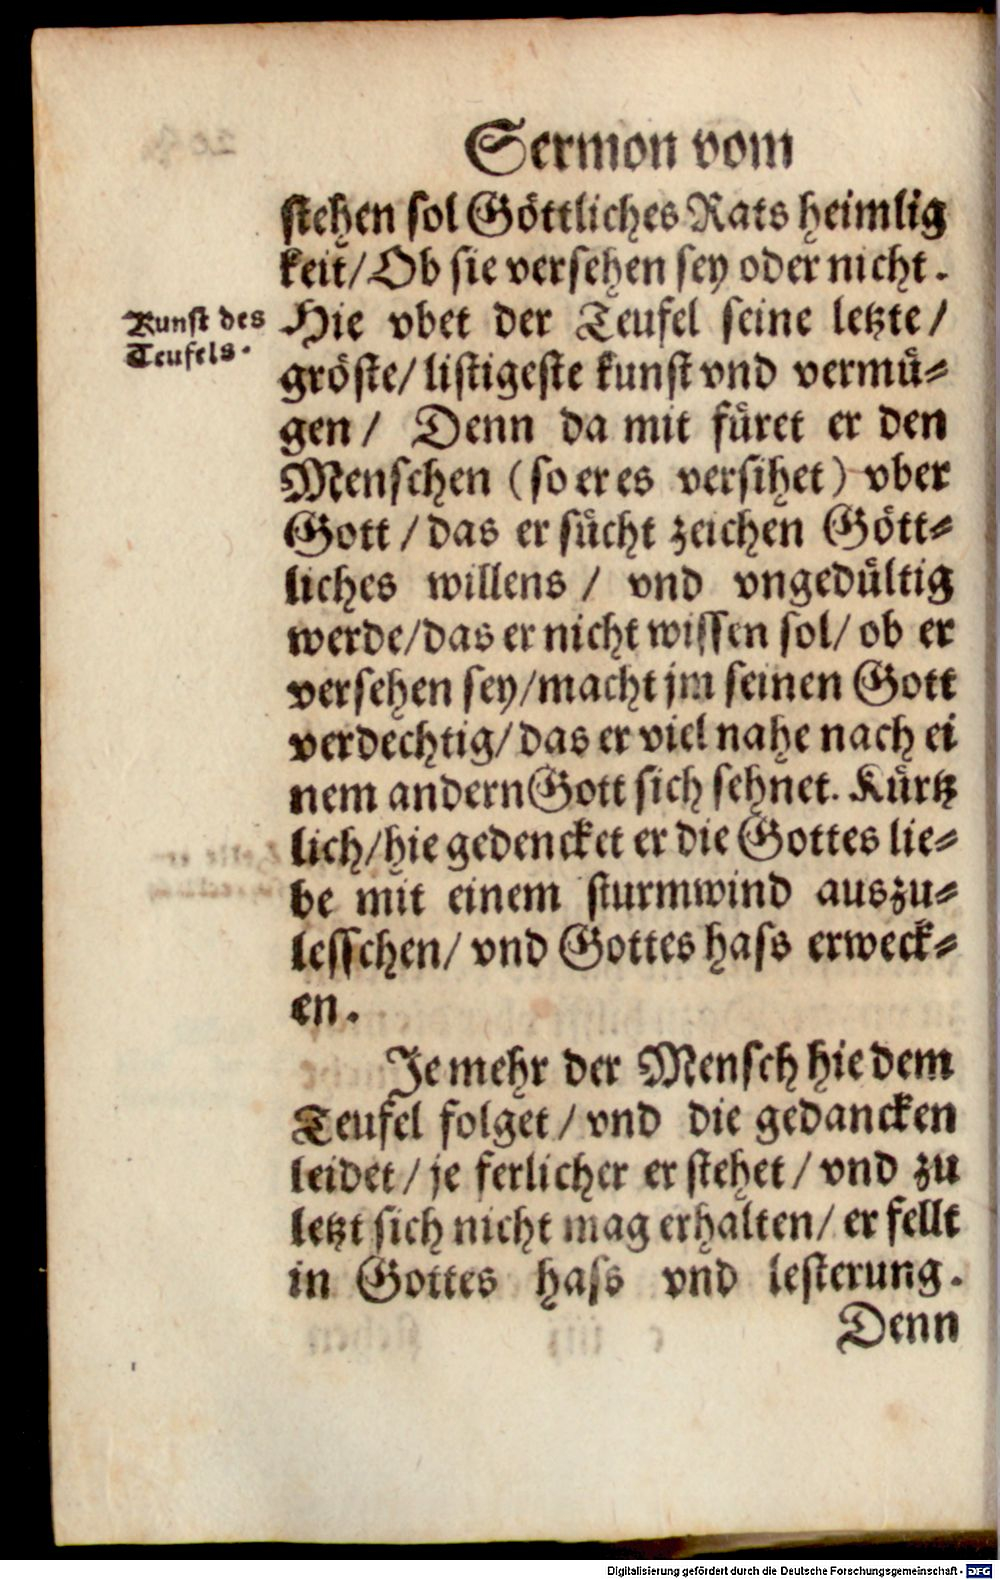 Sermon vom
stehen sol Göttliches Rats heimlig
keit/ Ob sie versehen sey oder nicht.
Kunst des
Teufels.
Hie vbet der Teufel seine letzte/
gröste/ listigeste kunst vnd vermü-
gen/ Denn da mit füret er den
Menschen (so er es versihet) vber
Gott/ das er sücht zeichen Gött-
liches willens/ vnd vngedültig
werde/ das er nicht wissen sol/ ob er
versehen sey/ macht jm seinen Gott
verdechtig/ das er viel nahe nach ei
nem andern Gott sich sehnet. Kürtz
lich/ hie gedencket er die Gottes lie-
be mit einem sturmwind auszu-
lesschen/ vnd Gottes hass erweck-
en.
Je mehr der Mensch hie dem
Teufel folget/ vnd die gedancken
leidet/ je ferlicher er stehet/ vnd zu
letzt sich nicht mag erhalten/ er fellt
in Gottes hass vnd lesterung.
Denn
Digitalisierung gefördert durch die Deutsche Forschungsgemeinschaft - DFG